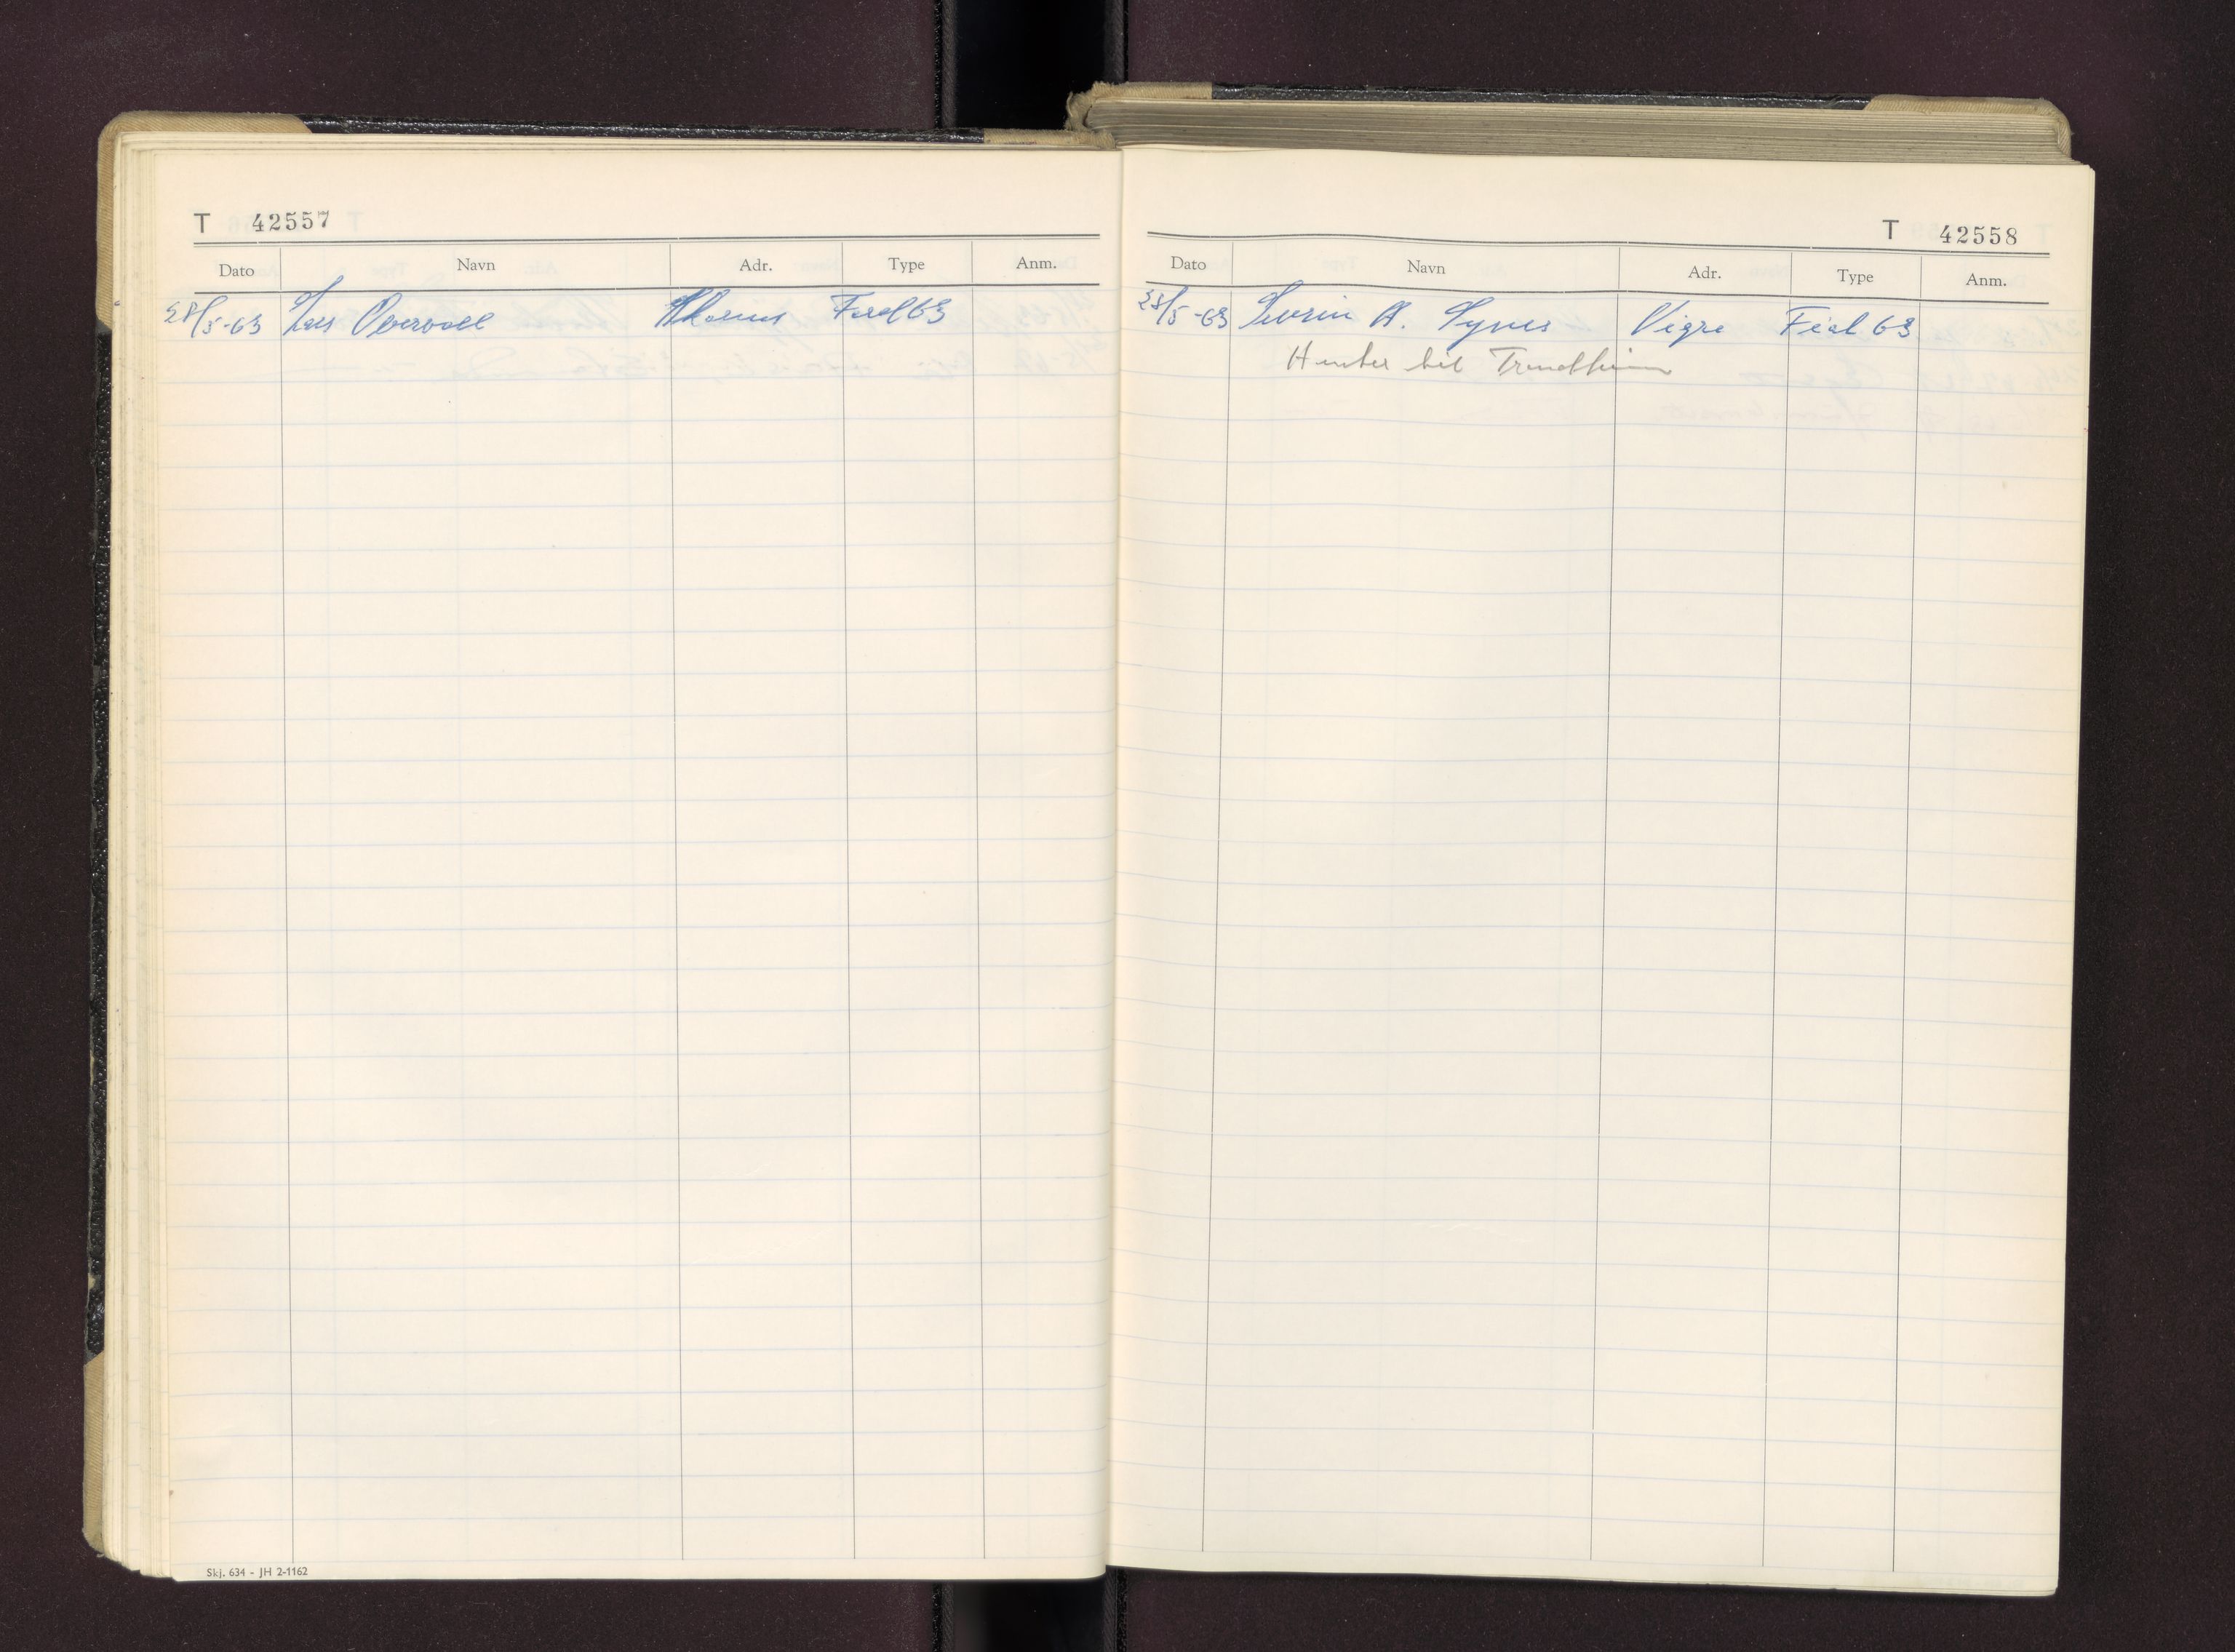 T 42557
Dato Navn Adr. Type Anm.
28/5-63 Lars Overvoll Ford 63
Skj. 634 - JH 2-1162
T 42558
Dato Navn Adr. Type Anm.
28/5-63 Sevrin A. Synes Vigra Fiat 63
til Trondheim